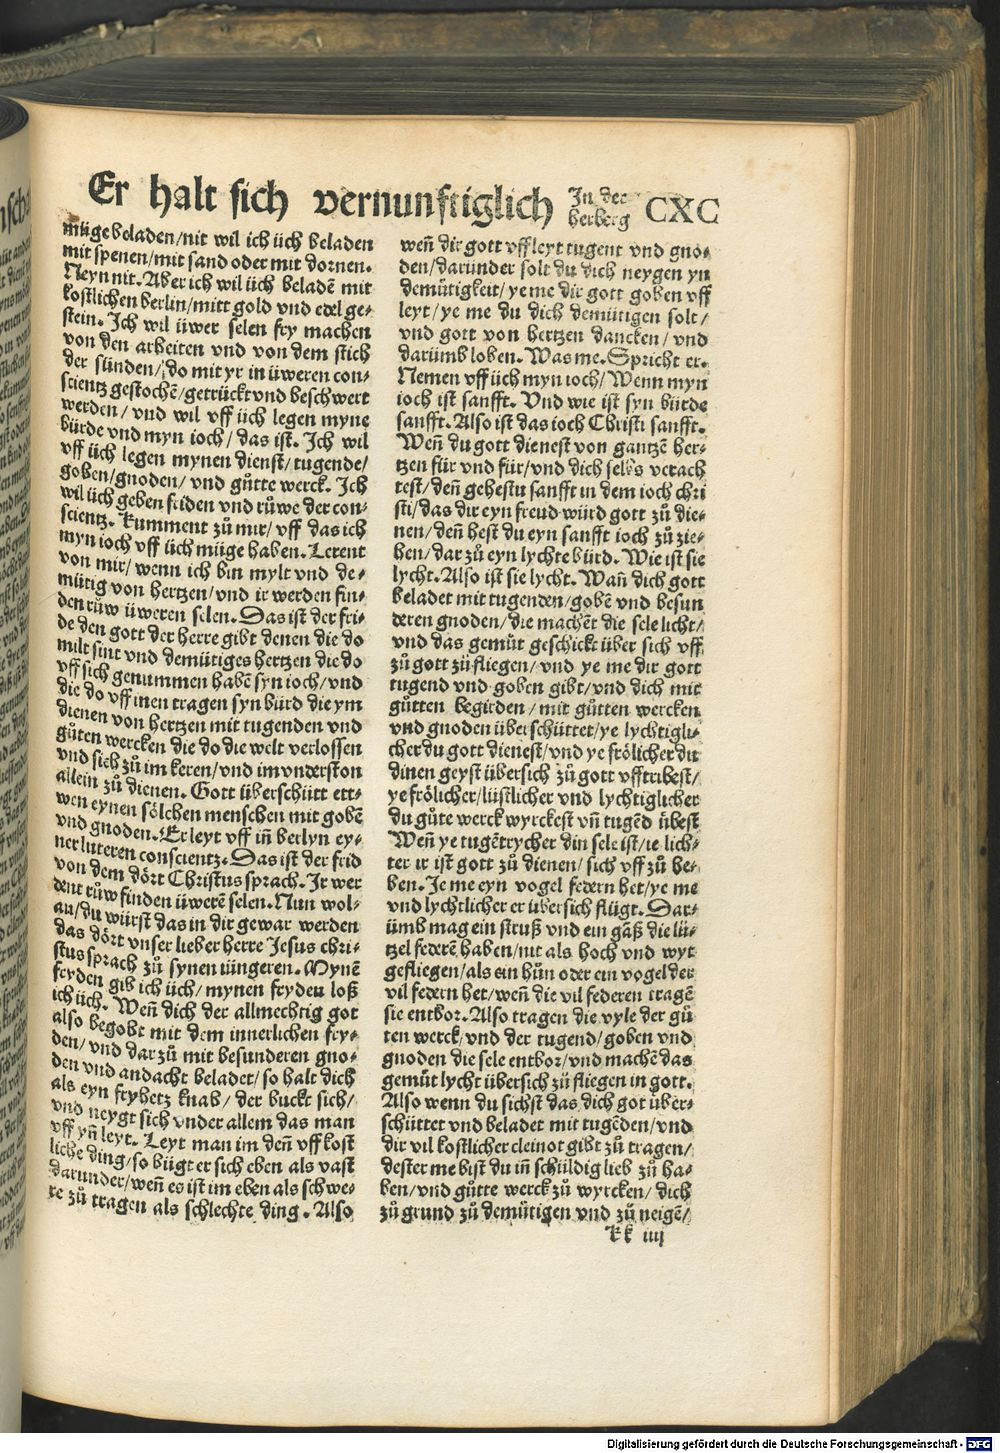 Er halt sich vernunfftiglich In der herberg CXC
müge beladen/nit wil ich üch beladen
mit spenen/mit sand oder mit dornen.
Neyn nit. Aber ich wil üch beladē mit
kostlichen berlin/mitt gold vnd edel ge-
stein. Ich wil üwer selen fry machen
von den arbeiten vnd von dem stich
der sünden/do mit yr in üweren con-
scientz gestochē/getrückt vnd beschwert
werden/vnd wil vff üch legen myne
bürde vnd myn ioch/das ist. Ich wil
vff üch legen mynen dienst/tugende/
goben/gnoden/vnd gůtte werck. Ich
wil üch geben friden vnd růwe der con-
scientz. Kumment zů mir/vff das ich
myn ioch vff üch müge haben. Lerent
von mir/wenn ich bin mylt vnd de-
mütig von hertzen/vnd ir werden fin-
den růw üweren selen. Das ist der fri-
de den gott der herre gibt denen die do
milt sint vnd demütiges hertzen die do
vff sich genummen habē syn ioch/vnd
die do vff inen tragen syn bürd die ym
dienen von hertzen mit tugenden vnd
gůten wercken die do die welt verlossen
vnd sich zů im keren/vnd im vnderston
allein zů dienen. Gott überschütt ett-
wen eynen sölchen menschen mit gobē
vnd gnoden. Er leyt vff in̄ berlyn ey-
ner luteren conscientz. Das ist der frid
von dem dört Christus sprach. Ir wer
dent růw finden üwerē selen. Nun wol-
an/du würst das in dir gewar werden
das dört vnser lieber herre Jesus chri-
stus sprach zů synen iüngeren. Mynē
fryden gib ich üch/mynen fryden loß
ich üch. Wen̄ dich der allmechtig got
also begobt mit dem innerlichen fry-
den/vnd dar zů mit besunderen gno-
den vnd andacht beladet/so halt dich
als eyn fryhetz knab/der buckt sich/
vnd neygt sich vnder allem das man
vff yn̄ leyt. Leyt man im den̄ vff kost
liche ding/so bügt er sich eben als vast
darunder/wen̄ es ist im eben als schwe-
re zů tragen als schlechte ding. Also
wen̄ dir gott vff leyt tugent vnd gno-
den/daründer solt du dich neygen yn
demütigkeit/ye me dir gott goben vff
leyt/ye me du dich demütigen solt/
vnd gott von hertzen dancken/vnd
darümb loben. Was me. Spricht er.
Nemen vff üch myn ioch/Wenn myn
ioch ist sanfft. Vnd wie ist syn bürde
sanfft. Also ist das ioch Christi sanfft.
Wen̄ du gott dienest von gantzē her-
tzen für vnd für/vnd dich selbs verach
test/den̄ gehestu sanfft in dem ioch chri
sti/das dir eyn freud würd gott zů die-
nen/den̄ hest du eyn sanfft ioch zů zie-
hen/dar zů eyn lychte bürd. Wie ist sie
lycht. Also ist sie lycht. Wan̄ dich gott
beladet mit tugenden/gobē vnd besun
deren gnoden/die machēt die sele licht/
vnd das gemüt geschickt über sich vff
zů gott zů fliegen/vnd ye me dir gott
tugend vnd goben gibt/vnd dich mit
gůtten begirden/mit gůtten wercken
vnd gnoden überschüttet/ye lychtigli-
cher du gott dienest/vnd ye frölicher du
dinen geyst übersich zů gott vfftribest/
ye frölicher/lüstlicher vnd lychtiglicher
du gůte werck wyrckest vn̄ tugēd übest
Wen̄ ye tugētrycher din sele ist/ie lich-
ter ir ist gott zů dienen/sich vff zů he-
ben. Je me eyn vogel federn het/ye me
vnd lychtlicher er übersich flügt. Dar-
ümb mag ein struß vnd ein gāß die lü-
tzel federē haben/nit als hoch vnd wyt
gefliegen/als ein hůn oder ein vogel der
vil federn het/wen̄ die vil federen tragē
sie entbor. Also tragen die vyle der gů
ten werck/vnd der tugend/goben vnd
gnoden die sele entbor/vnd machē das
gemüt lycht übersich zů fliegen in gott.
Also wenn du sichst das dich got über-
schüttet vnd beladet mit tugēden/vnd
dir vil kostlicher cleinot gibt zů tragen/
dester me bist du in̄ schüldig lieb zů ha-
ben/vnd gůtte werck zů wyrcken/dich
zů grund zů demütigen vnd zů neigē/
Kk iiij
Digitalisierung gefördert durch die Deutsche Forschungsgemeinschaft - DFG